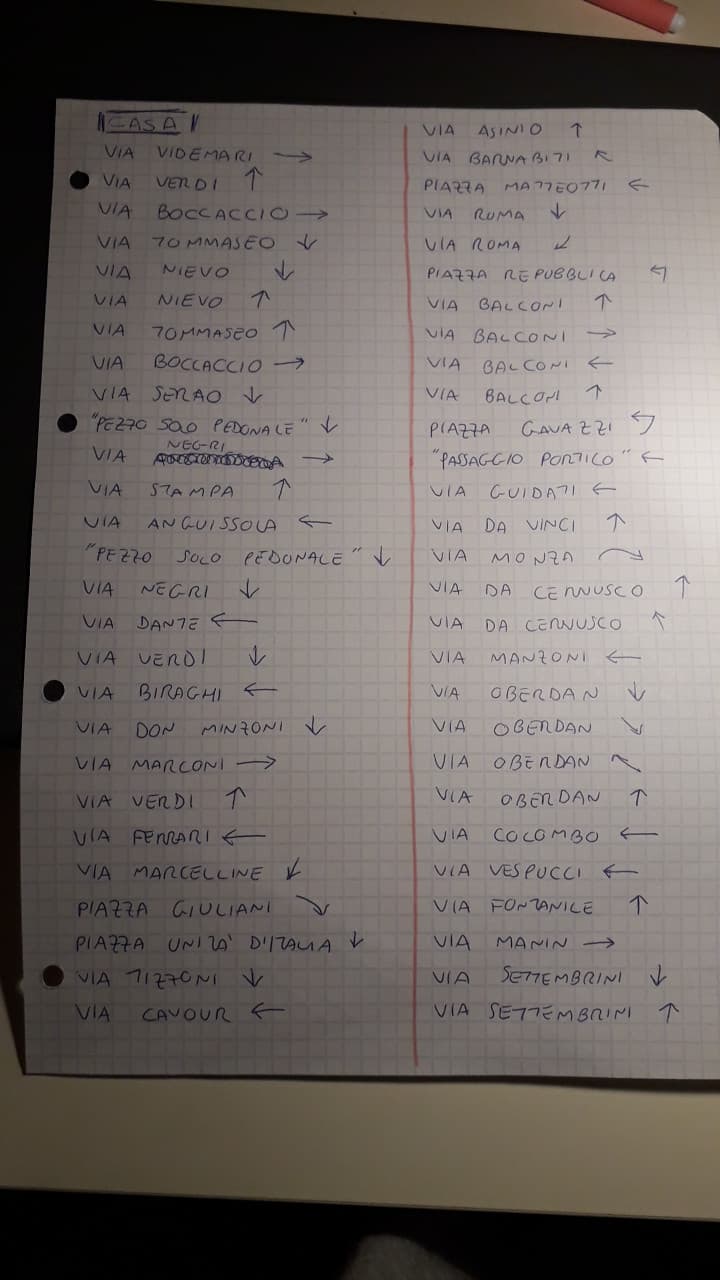 CASA
VIA VIDEMARI →
VIA VERDI ↑
VIA BOCCACCIO →
VIA TOMMASEO ↓
VIA NIEVO ↓
VIA NIEVO ↑
VIA TOMMASEO ↑
VIA BOCCACCIO →
VIA SERAO ↓
"PEZZO SOLO PEDONALE" ↓
VIA NEGRI →
VIA STAMPA ↑
VIA ANGUISSOLA ←
"PEZZO SOLO PEDONALE" ↓
VIA NEGRI ↓
VIA DANTE ←
VIA VERDI ↓
VIA BIRAGHI ←
VIA DON MINZONI ↓
VIA MARCONI →
VIA VERDI ↑
VIA FERRARI ←
VIA MARCELLINE ↙
PIAZZA GIULIANI ↘
PIAZZA UNITA' D'ITALIA ↓
VIA TIZZONI ↓
VIA CAVOUR ←
VIA ASINIO ↑
VIA BARNABITI ↖
PIAZZA MATTEOTTI ←
VIA ROMA ↓
VIA ROMA ↙
PIAZZA REPUBBLICA ↰
VIA BALCONI ↑
VIA BALCONI →
VIA BALCONI ←
VIA BALCONI ↑
PIAZZA GAVAZZI ↰
"PASSAGGIO PORTICO" ←
VIA GUIDATI ←
VIA DA VINCI ↑
VIA MONZA ↘
VIA DA CERNUSCO ↑
VIA DA CERNUSCO ↖
VIA MANZONI ←
VIA OBERDAN ↓
VIA OBERDAN ↘
VIA OBERDAN ↖
VIA OBERDAN ↑
VIA COLOMBO ←
VIA VESPUCCI ←
VIA FONTANILE ↑
VIA MANIN →
VIA SETTEMBRINI ↓
VIA SETTEMBRINI ↑